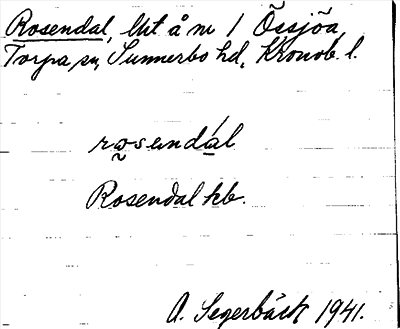 Rosendal, lht å nr 1 Össjöa,
Torpa sn, Sunnerbo hd, Kronob. l.
rosendál
Rosendal kb.
A. Segerbäck 1941.